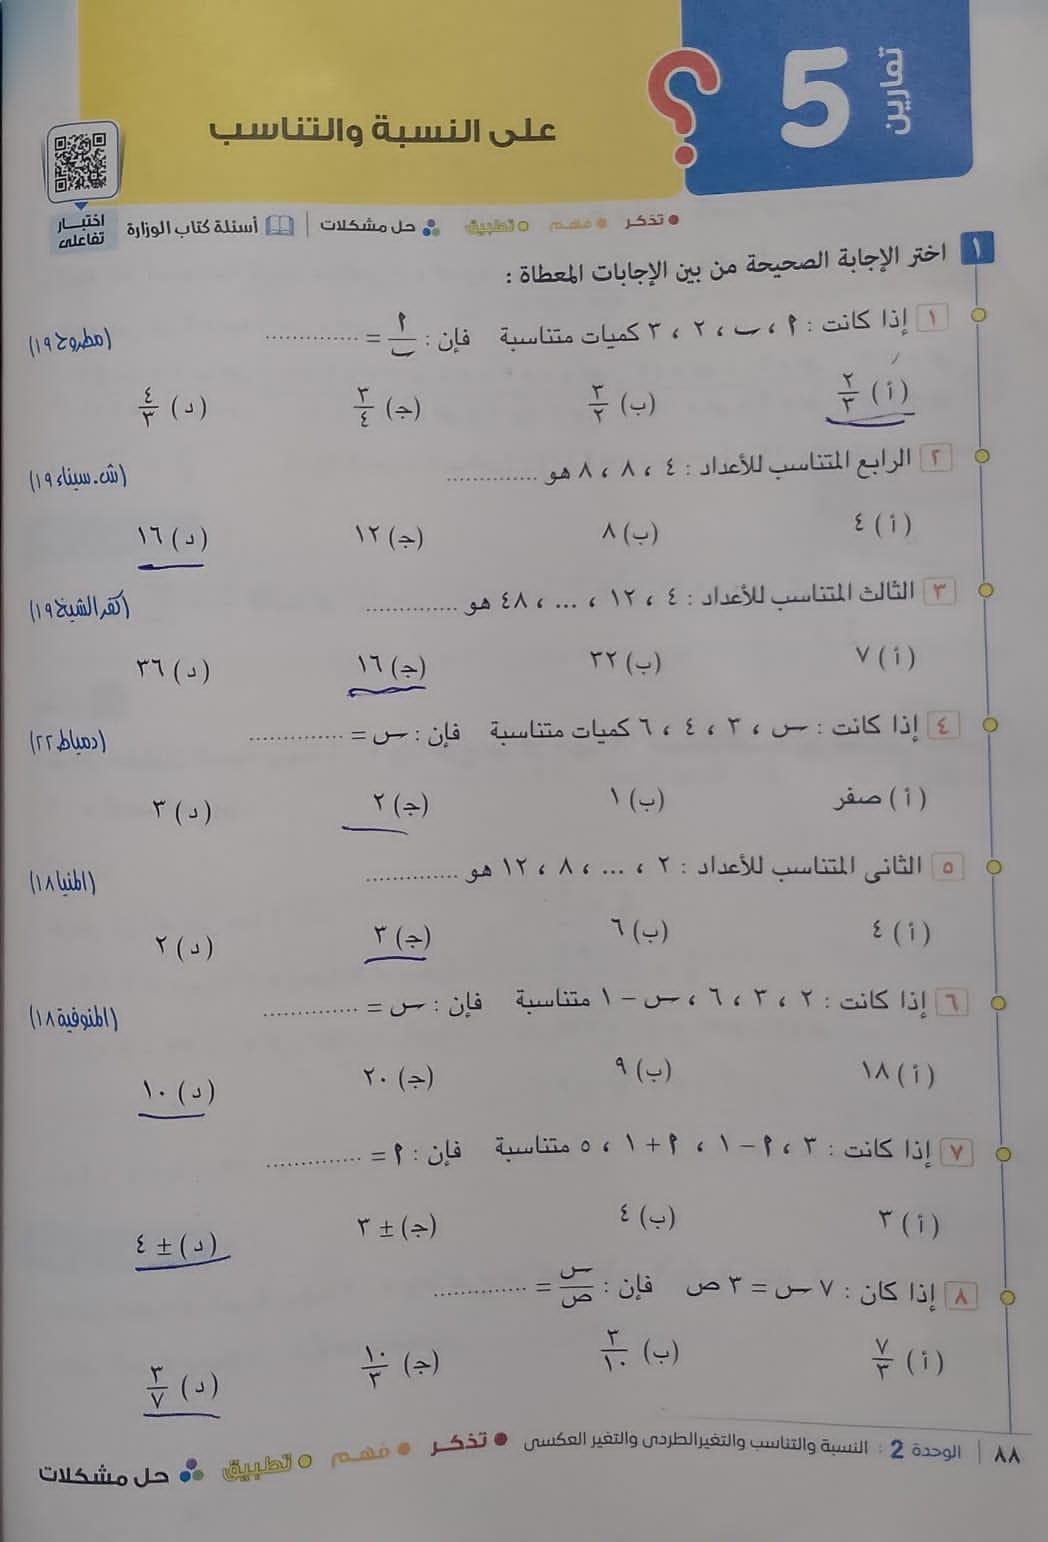 تمارين 5
على النسبة والتناسب
تذكر فهم تطبيق حل مشكلات أسئلة كتاب الوزارة
اختبار تفاعلى
١ اختر الإجابة الصحيحة من بين الإجابات المعطاة :
١ إذا كانت : ٢ ، ب ، ٢ ، ٣ كميات متناسبة فإن : م/ب = .............. (مطروح ١٩)
(أ) ٢/٣ (ب) ٣/٢ (ج) ٣/٤ (د) ٤/٣
٢ الرابع المتناسب للأعداد : ٤ ، ٨ ، ٨ هو .............. (ش. سيناء ١٩)
(أ) ٤ (ب) ٨ (ج) ١٢ (د) ١٦
٣ الثالث المتناسب للأعداد : ٤ ، ١٢ ، ... ، ٤٨ هو .............. (كفر الشيخ ١٩)
(أ) ٧ (ب) ٣٢ (ج) ١٦ (د) ٣٦
٤ إذا كانت : س ، ٣ ، ٤ ، ٦ كميات متناسبة فإن : س = .............. (دمياط ٢٢)
(أ) صفر (ب) ١ (ج) ٢ (د) ٣
٥ الثانى المتناسب للأعداد : ٢ ، ... ، ٨ ، ١٢ هو .............. (المنيا ١٨)
(أ) ٤ (ب) ٦ (ج) ٣ (د) ٢
٦ إذا كانت : ٢ ، ٣ ، ٦ ، س - ١ متناسبة فإن : س = .............. (المنوفية ١٨)
(أ) ١٨ (ب) ٩ (ج) ٢٠ (د) ١٠
٧ إذا كانت : ٣ ، م - ١ ، م + ١ ، ٥ متناسبة فإن : م = ..............
(أ) ٣ (ب) ٤ (ج) ± ٣ (د) ± ٤
٨ إذا كان : ٧ س = ٣ ص فإن : س/ص = ..............
(أ) ٧/٣ (ب) ٣/١٠ (ج) ١٠/٣ (د) ٣/٧
٨٨ الوحدة 2 : النسبة والتناسب والتغير الطردى والتغير العكسى تذكر فهم تطبيق حل مشكلات